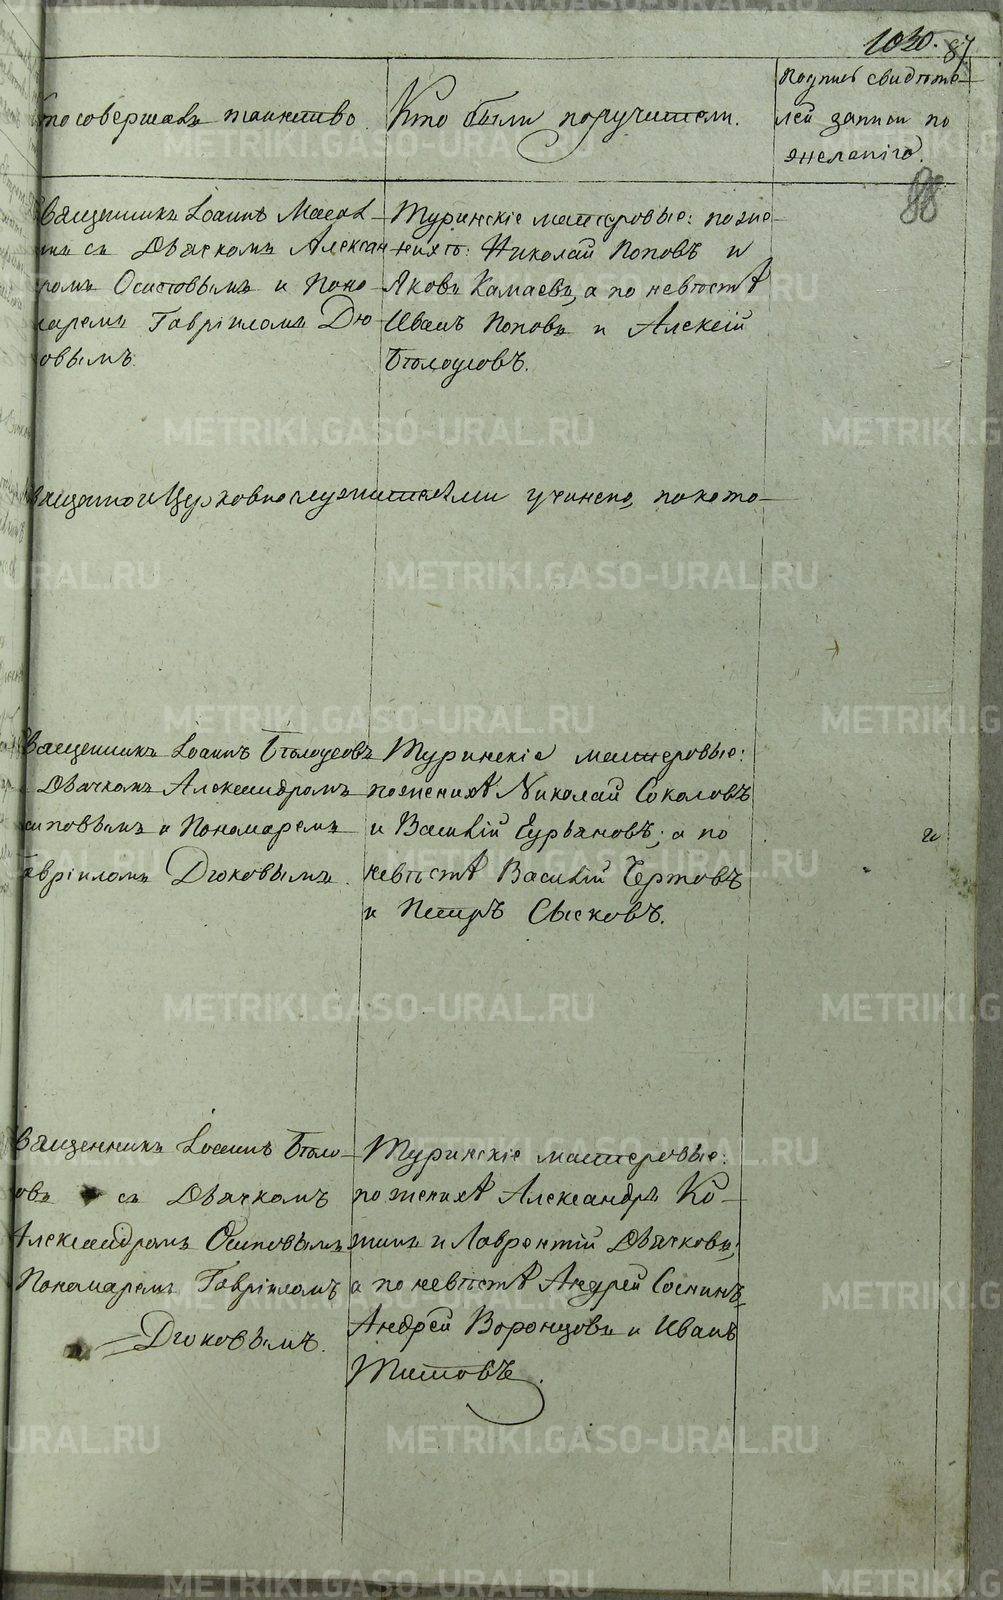 1030. 87
88
то совершалъ таинство.
Кто были поручители.
Подпись свидѣте-
лей записи по
желанію.
вященникъ Іоаннъ
съ Дьячкомъ Алексан
ромъ Осиповымъ и Поно-
аремъ Гавріиломъ Дю-
овымъ.
Туринскіе мастеровые: по же-
нихѣ: Николай Поповъ и
Яковъ Камаевъ, а по невѣстѣ
Иванъ Поповъ и Алексій
Бѣлоусовъ.
вященно и Церковнослужителями учинено, по кото-
вященникъ Іоаннъ Бѣлоусовъ
Дьячкомъ Александромъ
сиповымъ и Пономаремъ
авріиломъ Дюковымъ.
Туринскіе мастеровые:
по женихѣ Николай Соколовъ
и Василій Гурьяновъ; а по
невѣстѣ Василій Чертовъ
и Петръ Сысковъ.
вященникъ Іоаннъ Бѣло-
овъ съ Дьячкомъ
Александромъ Осиповымъ
Пономаремъ Гавріиломъ
Дюковымъ.
Туринскіе мастеровые:
по женихѣ Александръ Ко-
жинъ и Лаврентій Дьячковъ;
а по невѣстѣ Андрей Соснинъ,
Андрей Воронцовъ и Иванъ
Титовъ.
METRIKI.GASO-URAL.RU